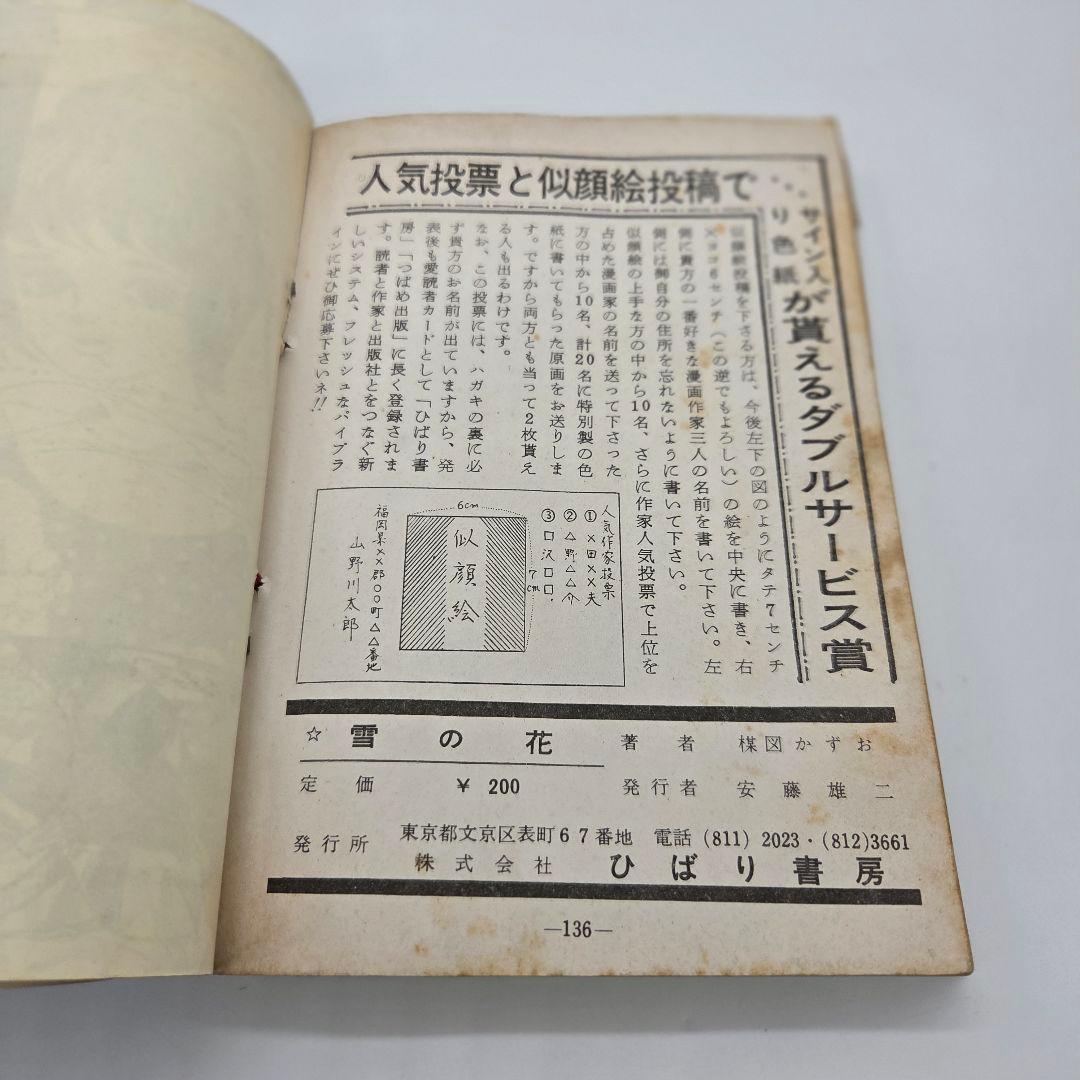 人気投票と似顔絵投稿で
…サイン入り色紙が貰えるダブルサービス賞
似顔絵投稿を下さる方は、今後左下の図のようにタテ7センチ
×ヨコ6センチ（この逆でもよろしい）の絵を中央に書き、右
側に貴方の一番好きな漫画作家三人の名前を書いて下さい。左
側には御自分の住所を忘れないように書いて下さい。
似顔絵の上手な方の中から10名、さらに作家人気投票で上位を
占めた漫画家の名前を送って下さった
方の中から10名、計20名に特別製の色
紙に書いてもらった原画をお送りしま
す。ですから両方とも当って2枚貰え
る人も出るわけです。
なお、この投票には、ハガキの裏に必
ず貴方のお名前が出ていますから、発
表後も愛読者カードとして「ひばり書
房」「つばめ出版」に長く登録されま
す。読者と作家と出版社とをつなぐ新
しいシステム、フレッシュなパイプラ
インにぜひ御応募下さいネ!!
人気作家投票
① ×田××夫
② △野△△介
③ 口沢口口.
6cm
7cm
似顔絵
福岡県××郡○○町△△番地
山野川太郎
☆ 雪の花
著者 楳図かずお
定価 ￥200
発行者 安藤雄二
発行所
東京都文京区表町67番地 電話 (811) 2023・(812)3661
株式会社 ひばり書房
—136—